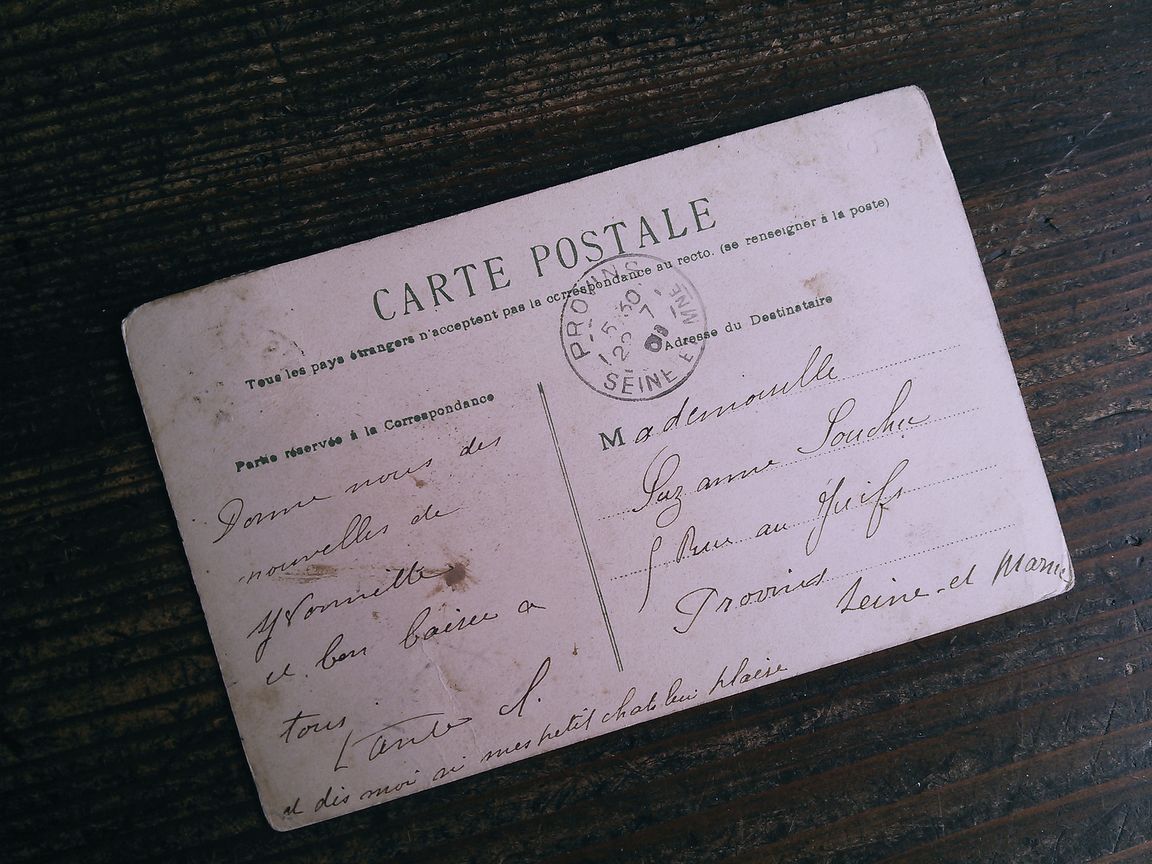 CARTE POSTALE
Tous les pays étrangers n'acceptent pas la correspondance au recto. (se renseigner à la poste)
PROVINS
5 30
22 7
SEINE ET MARNE
Partie réservée à la Correspondance
Donne nous des
nouvelles de
Yvonnette
un bon baiser a
tous
Tante
et dis moi si mes petit chats leui plaise
Adresse du Destinataire
Mademoiselle
Suzanne Souchu
5 Rue au Juifs
Provins
Seine-et Marne